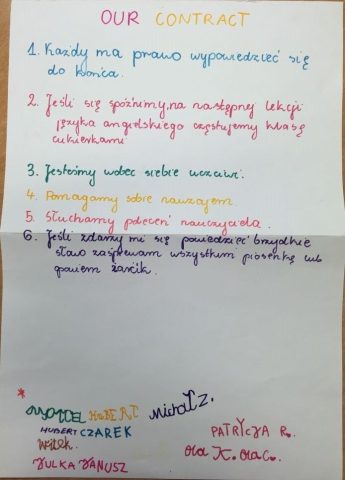 OUR CONTRACT
1. Każdy ma prawo wypowiedzieć się
do końca.
2. Jeśli się spóźnimy, na następnej lekcji
języka angielskiego częstujemy klasę
cukierkami
3. Jesteśmy wobec siebie uczciwi.
4. Pomagamy sobie nawzajem.
5. Słuchamy poleceń nauczyciela.
6. Jeśli zdarzy mi się powiedzieć brzydkie
słowo zaśpiewam wszystkim piosenkę lub
powiem żarcik.
HUBERT Michał Z.
HUBERT CZAREK
Witek
PATRYCJA R.
Ola K. Ola C.
JULKA JANUSZ